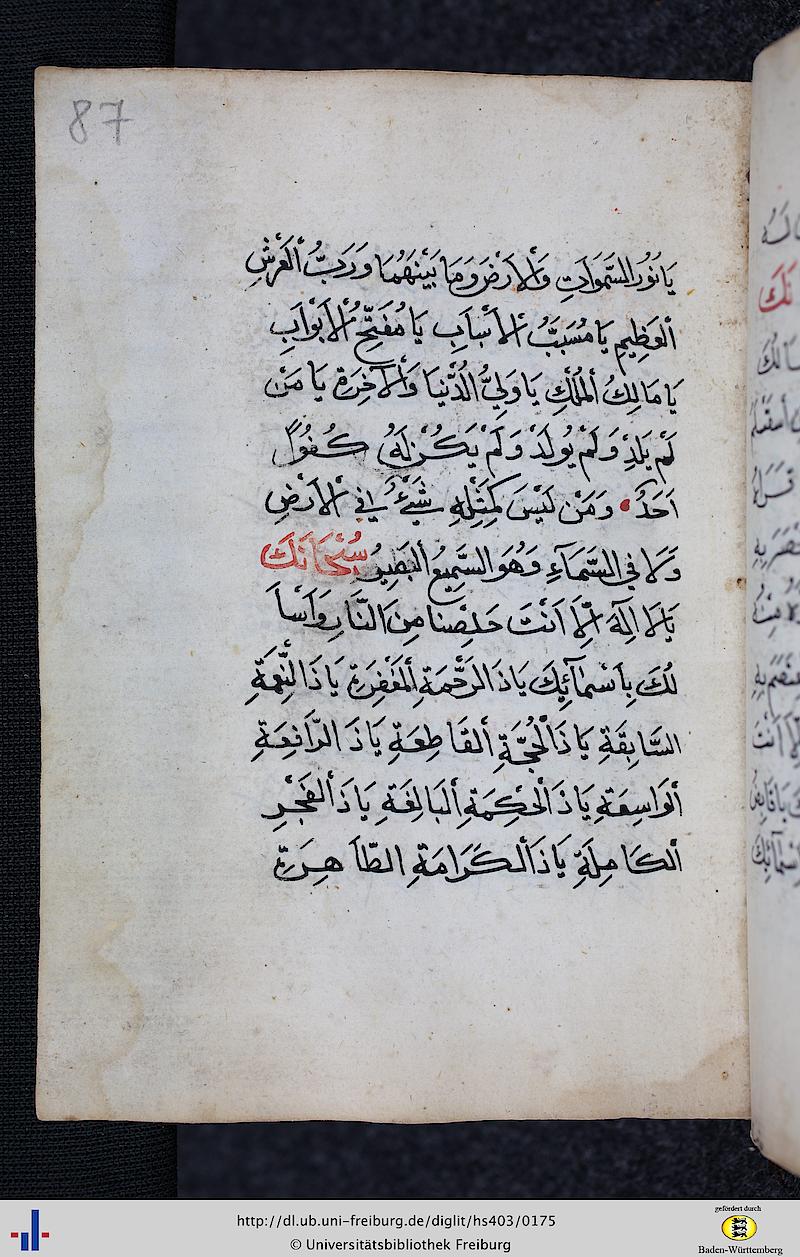 87
يَا نُورُ السَّمَوَاتِ وَالْاَرْضِ وَمَا بَيْنَهُمَا وَرَبُّ الْعَرْشِ
الْعَظِيمِ يَا مُسَبِّبُ الْاَسْبَابِ يَا مُفَتِّحُ الْاَبْوَابِ
يَا مَالِكُ الْمُلْكِ يَا وَلِيُّ الدُّنْيَا وَالْاٰخِرَةِ يَا مَنْ
لَمْ يَلِدْ وَلَمْ يُولَدْ وَلَمْ يَكُنْ لَهُ كُفُوًا
اَحَدٌ وَمَنْ لَيْسَ كَمِثْلِهِ شَيْءٌ فِي الْاَرْضِ
وَلَا فِي السَّمَآءِ وَهُوَ السَّمِيعُ الْبَصِيرُ سُبْحَانَكَ
يَا لَا اِلٰهَ اِلَّا اَنْتَ خَلِصْنَا مِنَ النَّارِ وَاَسْاَ
لُكَ بِاَسْمَآئِكَ يَا ذَا الرَّحْمَةِ الْمَغْفِرَةِ يَا ذَا النِّعْمَةِ
السَّابِقَةِ يَا ذَا الْحُجَّةِ الْقَاطِعَةِ يَا ذَا الرَّافِعَةِ
الْوَاسِعَةِ يَا ذَا الْحِكْمَةِ الْبَالِغَةِ يَا ذَا الْفَجْرِ
الْكَامِلَةِ يَا ذَا الْكَرَامَةِ الظَّاهِرَةِ
http://dl.ub.uni-freiburg.de/diglit/hs403/0175
© Universitätsbibliothek Freiburg
gefördert durch
Baden-Württemberg